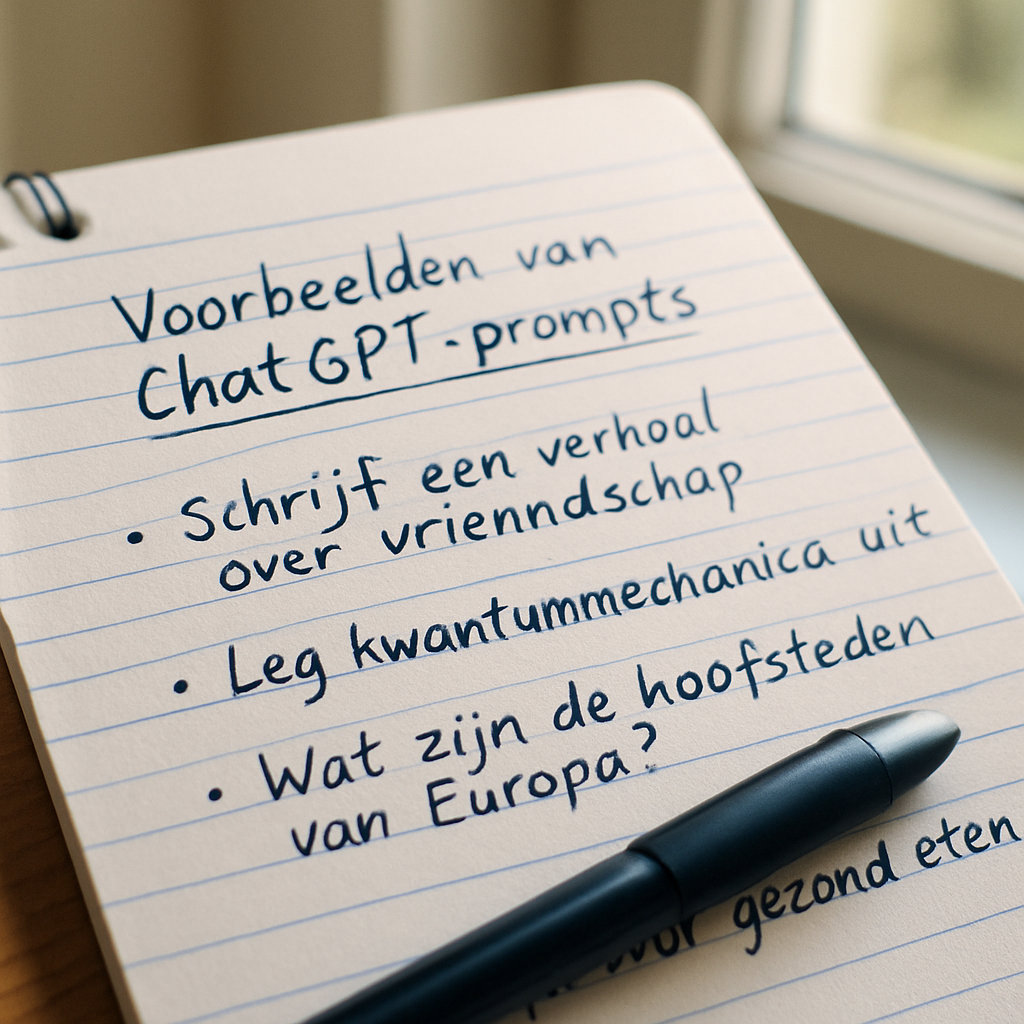 Voorbeelden van
ChatGPT-prompts
• Schrijf een verhoal
over vrienndschap
• Leg kwantummechanica uit
• Wat zijn de hoofsteden
van Europa?
gezond eten